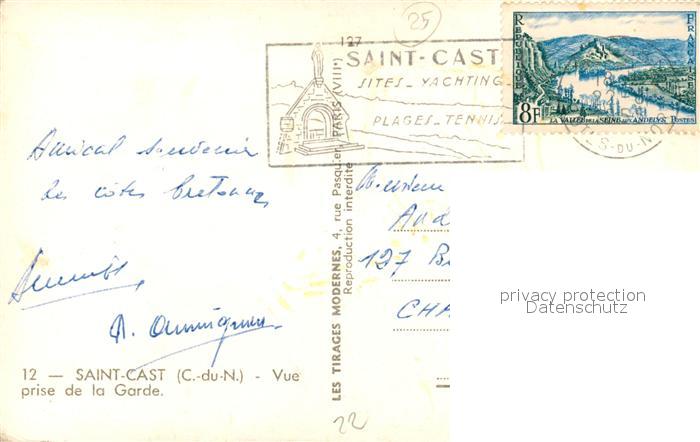 25
127
SAINT-CAST
SITES - YACHTING -
PLAGES - TENNIS
REPUBLIQUE FRANÇAISE
8F
LA VALLÉE DE LA SEINE AUX ANDELYS POSTES
-DU-NO
Amical souvenir
des côtes bretonnes
Monsieur
And
127 B
CHA
privacy protection
Datenschutz
LES TIRAGES MODERNES, 4, rue Pasquier, PARIS (VIIIe)
Reproduction interdite
12 — SAINT-CAST (C.-du-N.) - Vue
prise de la Garde.
22